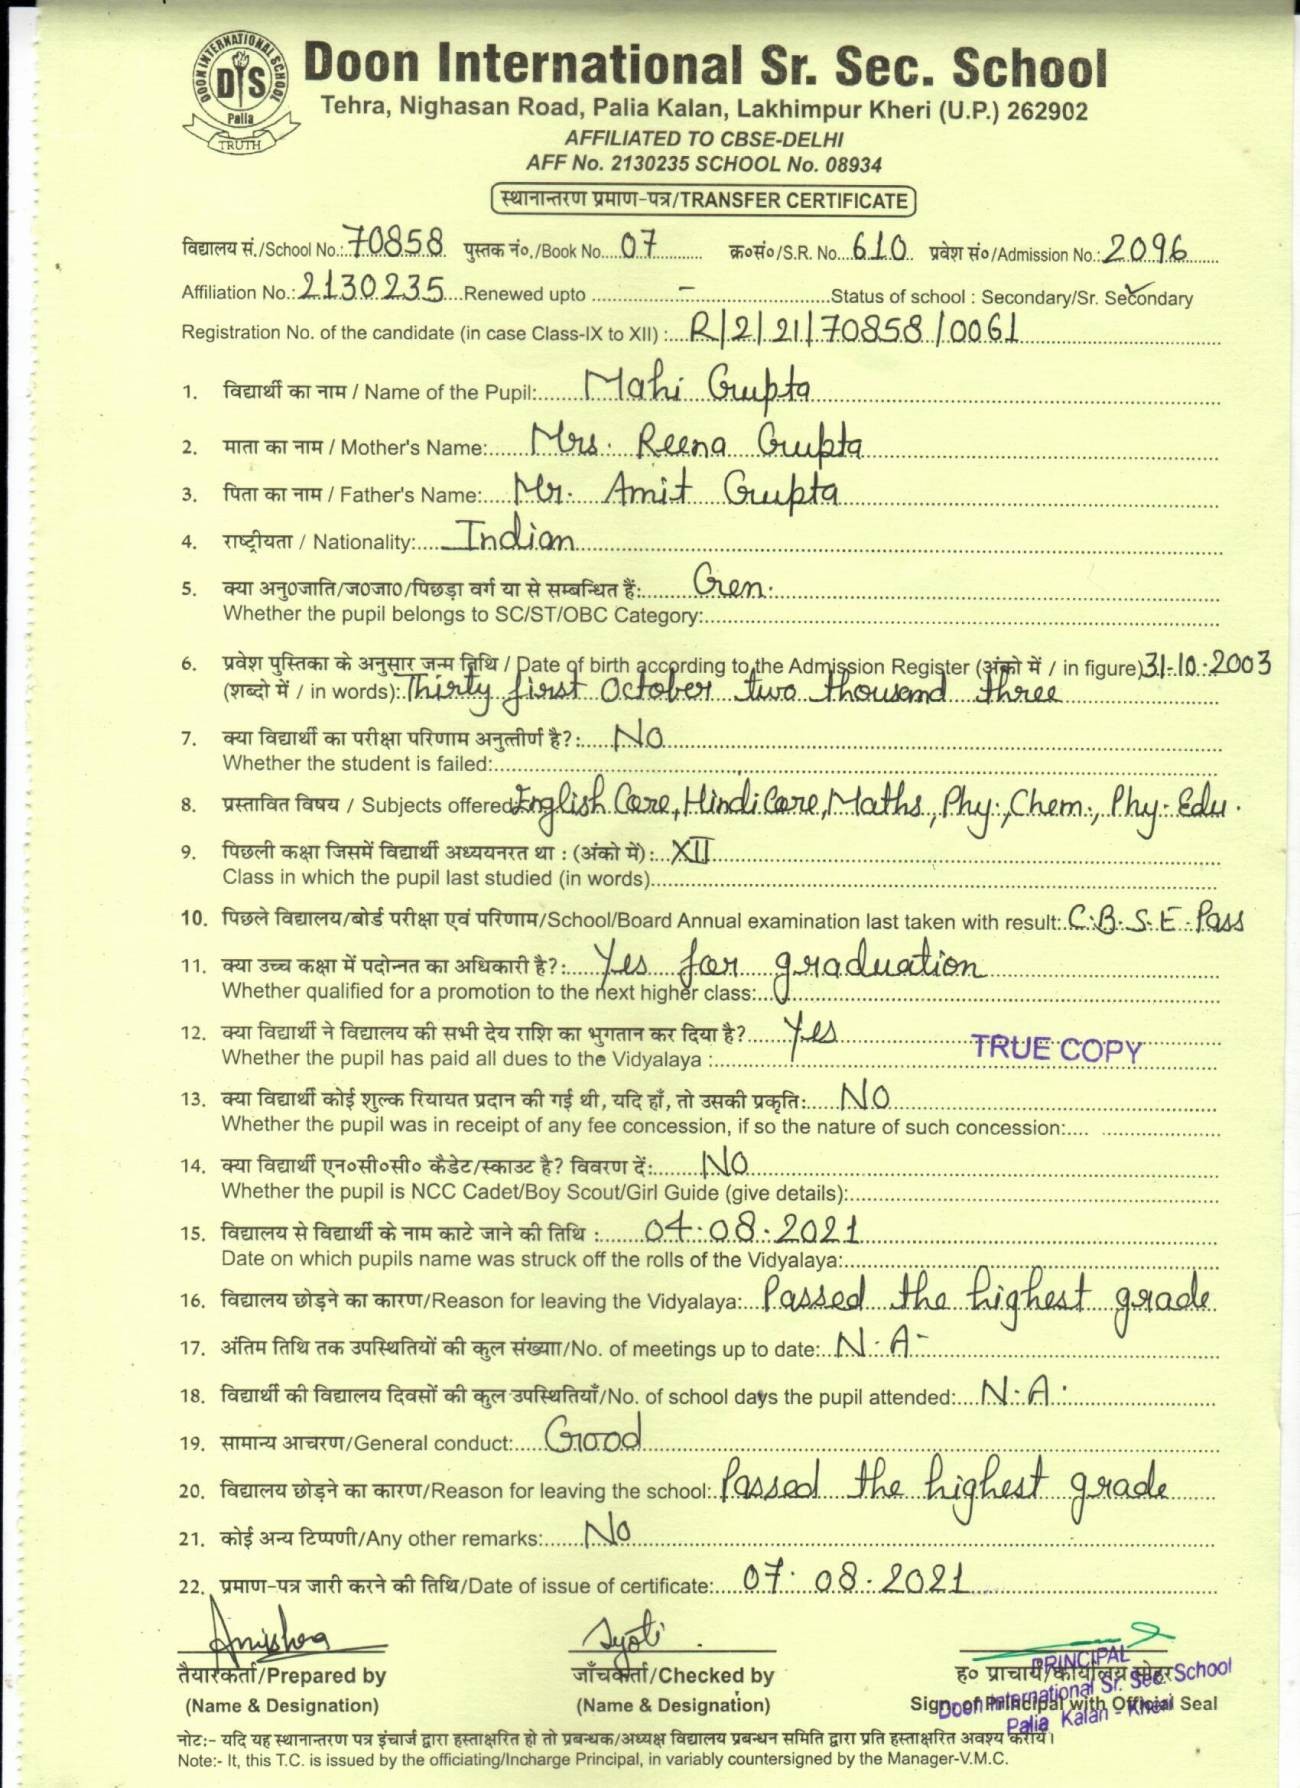 DOON INTERNATIONAL SCHOOL
DIS
Palia
TRUTH
Doon International Sr. Sec. School
Tehra, Nighasan Road, Palia Kalan, Lakhimpur Kheri (U.P.) 262902
AFFILIATED TO CBSE-DELHI
AFF No. 2130235 SCHOOL No. 08934
स्थानान्तरण प्रमाण-पत्र/TRANSFER CERTIFICATE
विद्यालय सं./School No.: 70858 पुस्तक नं०./Book No. 07 क्र०सं०/S.R. No. 610 प्रवेश सं०/Admission No.: 2096
Affiliation No.: 2130235 Renewed upto - Status of school : Secondary/Sr. Secondary
Registration No. of the candidate (in case Class-IX to XII) : R/2/21/70858/0061
1. विद्यार्थी का नाम / Name of the Pupil: Mahi Gupta
2. माता का नाम / Mother's Name: Mrs. Reena Gupta
3. पिता का नाम / Father's Name: Mr. Amit Gupta
4. राष्ट्रीयता / Nationality: Indian
5. क्या अनु0जाति/ज0जा0/पिछड़ा वर्ग या से सम्बन्धित हैं: Gen.
Whether the pupil belongs to SC/ST/OBC Category:
6. प्रवेश पुस्तिका के अनुसार जन्म तिथि / Date of birth according to the Admission Register (अंको में / in figure) 31-10-2003
(शब्दो में / in words): Thirty first October two thousand three
7. क्या विद्यार्थी का परीक्षा परिणाम अनुत्तीर्ण है?: No
Whether the student is failed:
8. प्रस्तावित विषय / Subjects offered: English Core, Hindi Core, Maths, Phy., Chem., Phy. Edu.
9. पिछली कक्षा जिसमें विद्यार्थी अध्ययनरत था : (अंको में): XII
Class in which the pupil last studied (in words)
10. पिछले विद्यालय/बोर्ड परीक्षा एवं परिणाम/School/Board Annual examination last taken with result: C.B.S.E. Pass
11. क्या उच्च कक्षा में पदोन्नत का अधिकारी है?: Yes for graduation
Whether qualified for a promotion to the next higher class:
12. क्या विद्यार्थी ने विद्यालय की सभी देय राशि का भुगतान कर दिया है? Yes
TRUE COPY
Whether the pupil has paid all dues to the Vidyalaya :
13. क्या विद्यार्थी कोई शुल्क रियायत प्रदान की गई थी, यदि हाँ, तो उसकी प्रकृति: No
Whether the pupil was in receipt of any fee concession, if so the nature of such concession:
14. क्या विद्यार्थी एन०सी०सी० कैडेट/स्काउट है? विवरण दें: No
Whether the pupil is NCC Cadet/Boy Scout/Girl Guide (give details):
15. विद्यालय से विद्यार्थी के नाम काटे जाने की तिथि : 04.08.2021
Date on which pupils name was struck off the rolls of the Vidyalaya:
16. विद्यालय छोड़ने का कारण/Reason for leaving the Vidyalaya: Passed the highest grade
17. अंतिम तिथि तक उपस्थितियों की कुल संख्या/No. of meetings up to date: N.A-
18. विद्यार्थी की विद्यालय दिवसों की कुल उपस्थितियाँ/No. of school days the pupil attended: N.A.
19. सामान्य आचरण/General conduct: Good
20. विद्यालय छोड़ने का कारण/Reason for leaving the school: Passed the highest grade
21. कोई अन्य टिप्पणी/Any other remarks: No
22. प्रमाण-पत्र जारी करने की तिथि/Date of issue of certificate: 07.08.2021
Jyoti
तैयारकर्ता/Prepared by जाँचकर्ता/Checked by ह० प्राचार्य/कार्यालय मोहर
(Name & Designation) (Name & Designation) Sign. of Principal with Official Seal
PRINCIPAL
Doon International Sr. Sec. School
Palia Kalan - Kheri
नोट:- यदि यह स्थानान्तरण पत्र इंचार्ज द्वारा हस्ताक्षरित हो तो प्रबन्धक/अध्यक्ष विद्यालय प्रबन्धन समिति द्वारा प्रति हस्ताक्षरित अवश्य करायें।
Note:- It, this T.C. is issued by the officiating/Incharge Principal, in variably countersigned by the Manager-V.M.C.